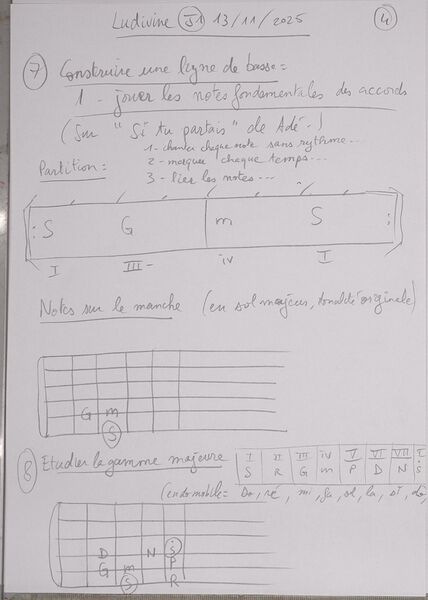 Ludivine S1 13/11/2025 4
7 Construire une ligne de basse =
1 - jouer les notes fondamentales des accords
(Sur "Si tu partais" de Adé.)
1 - chanter chaque note sans rythme...
2 - marquer chaque temps...
3 - lier les notes...
Partition =
: S G m S :
I III- iv I
Notes sur le manche (en sol majeur, tonalité originale)
G m
S
8 Etudier la gamme majeure
I II III iv V VI VII I
S R G m P D N S
(en do mobile = Do, ré, mi, fa, sol, la, si, do,
D N S
G m P
S R